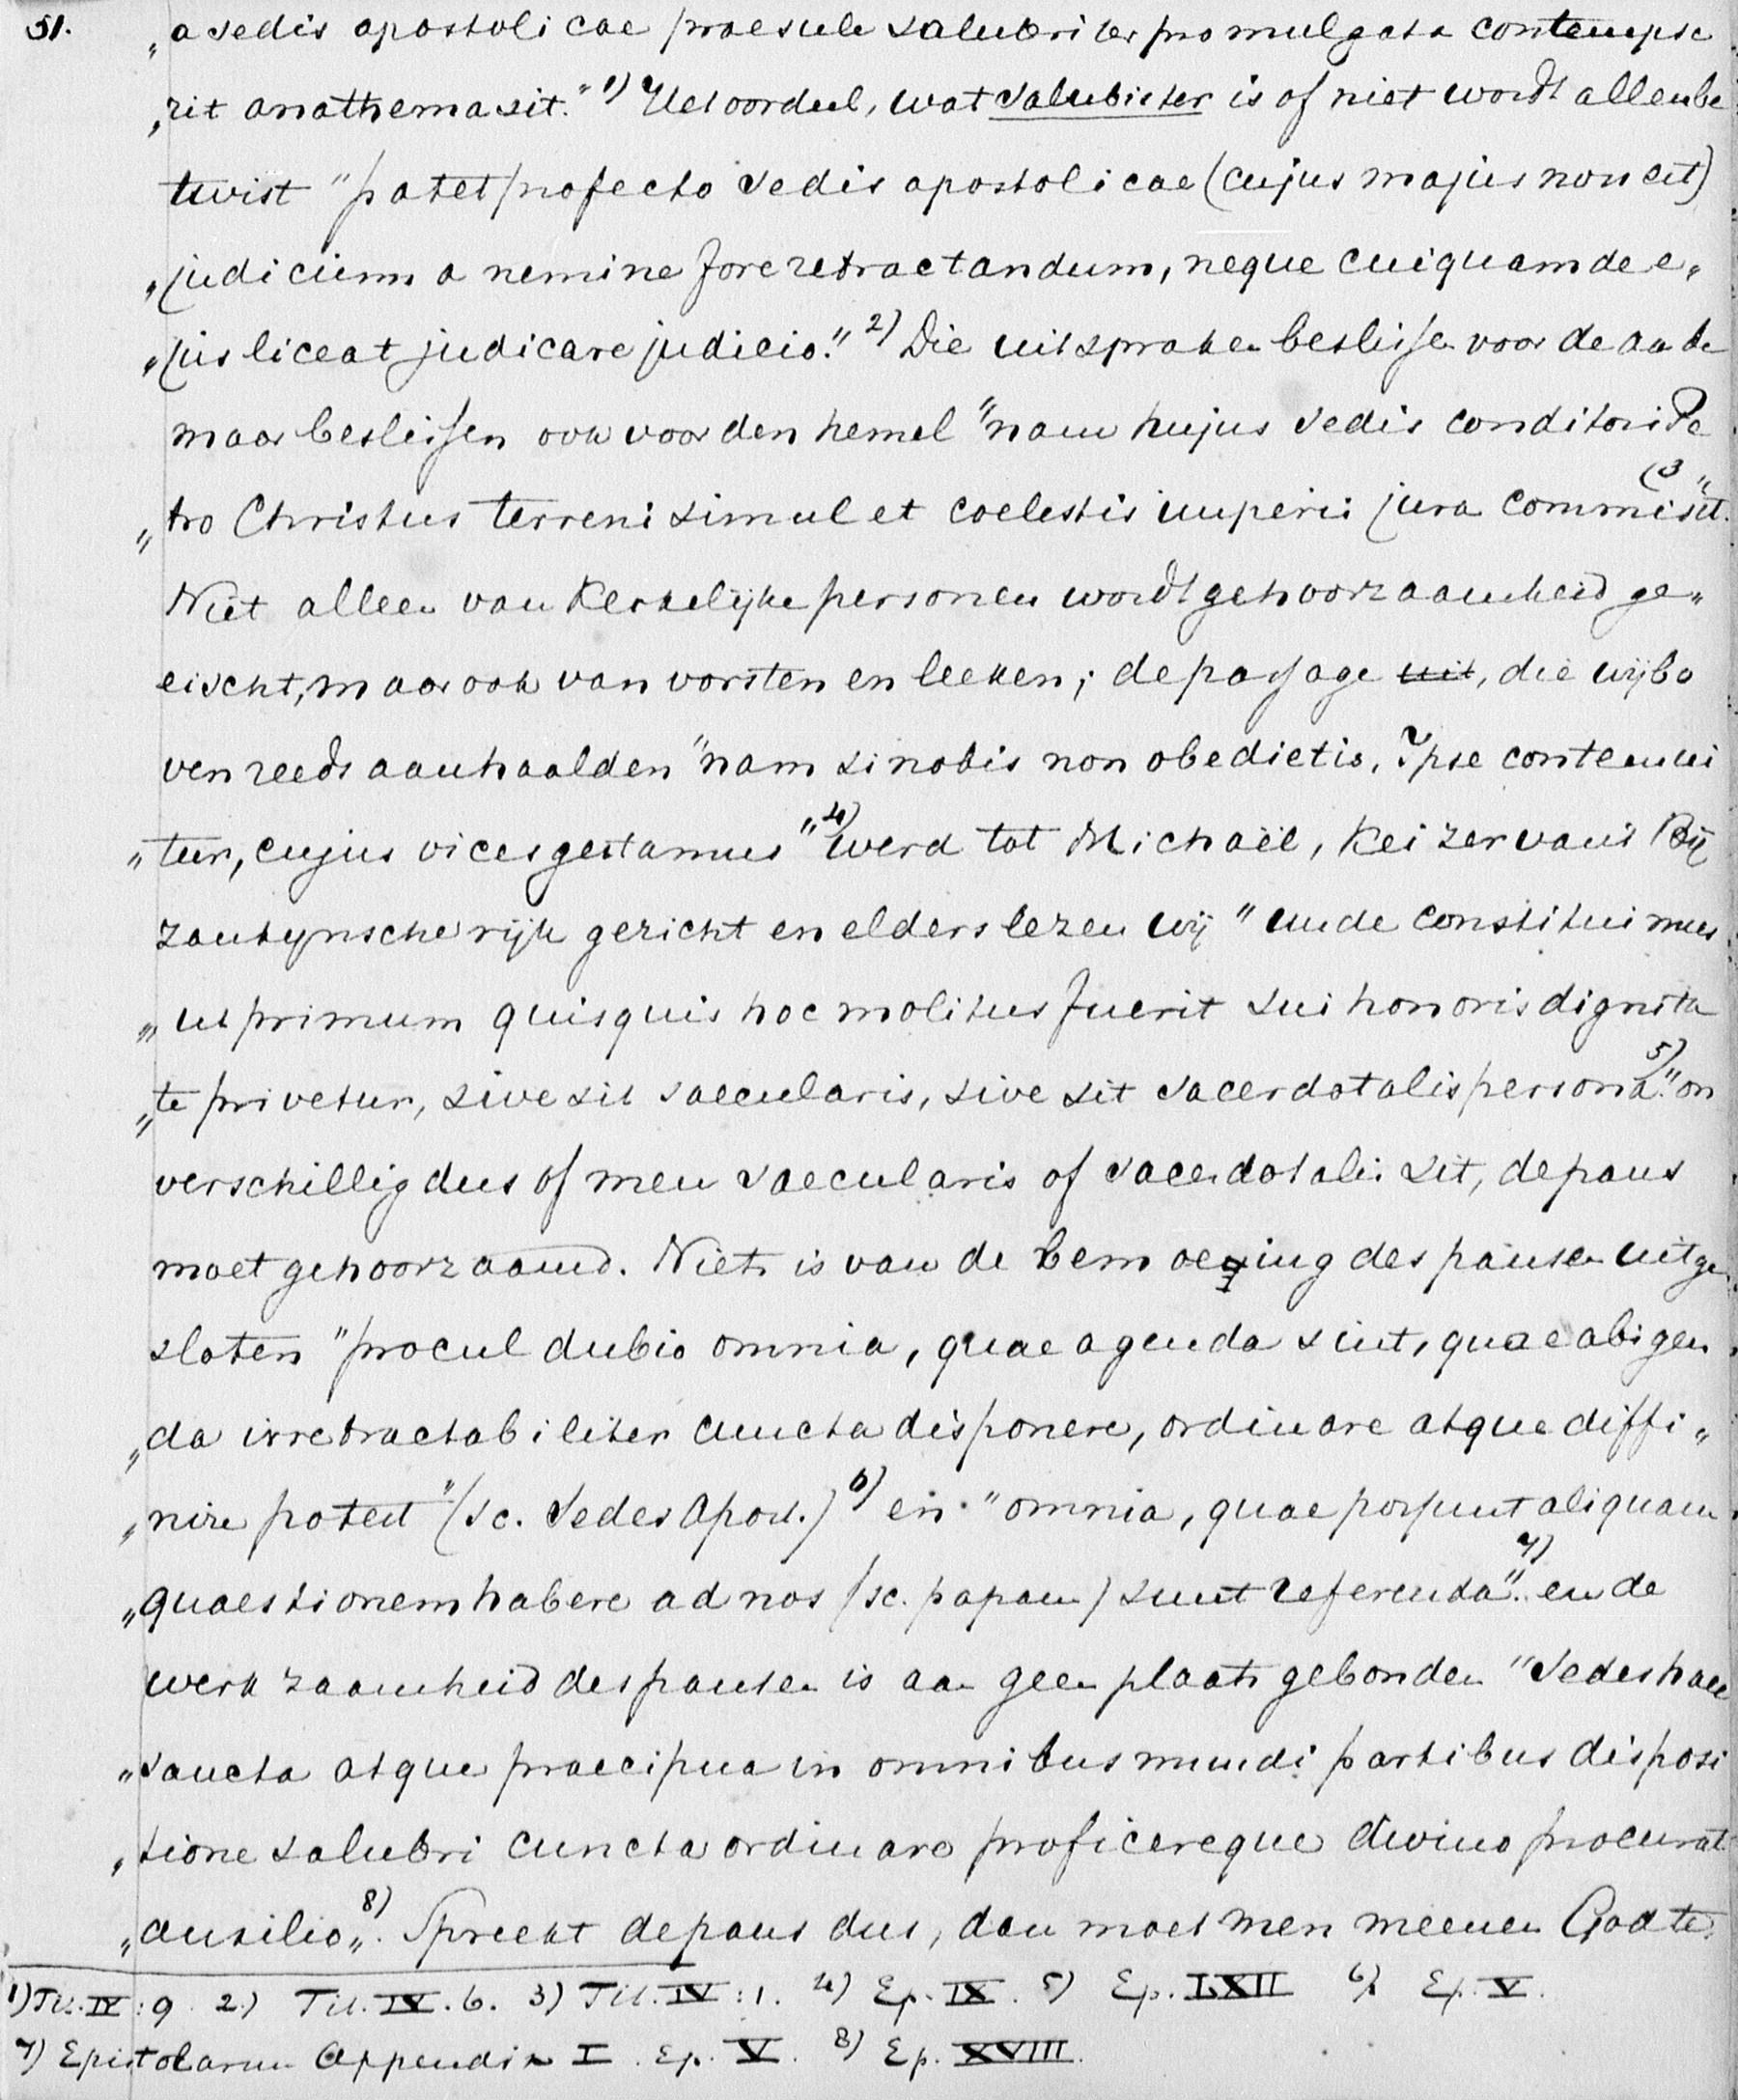 51.
"a sedis apostolicae praesule salubriter promulgata contempse
"rit anathema sit." 1) Het oordeel, wat salubriter is of niet wordt alleen be
twist "patet profecto sedis apostolicae (cujus majus non est)
"judicium a nemine fore retractandum, neque cuiquam de e"
"jus liceat judicare judicio." 2) Die uitspraken beslissen voor de aarde
maar beslissen ook voor den hemel "nam hujus sedis conditori Pe
"tro Christus terreni simul et coelestis imperii jura commisit." 3)
Niet alleen van Kerkelijke personen wordt gehoorzaamheid ge"
eischt, maar ook van vorsten en leeken; de passage uit, die wij bo
ven reeds aanhaalden "nam si nobis non obedietis, Ipse contemni
"tur, cujus vices gestamus" 4) werd tot Michaël, Keizer van 't By
zantynsche rijk gericht en elders lezen wij "unde constituimus
"ut primum quisquis hoc molitus fuerit sui honoris dignita
"te privetur, sive sit saecularis, sive sit sacerdotalis persona." 5) on
verschillig dus of men saecularis of sacerdotalis sit, de paus
moet gehoorzaamd. Niets is van de bemoeiing des pausen uitge
sloten "procul dubio omnia, quae agenda sint, quae abigen
"da irretractabiliter cuncta disponere, ordinare atque diffi"
"nire potest" (sc. Sedes Apost.) 6) en "omnia, quae possunt aliquam
"quaestionem habere ad nos (sc. papam) sunt referenda". 7) en de
werkzaamheid des pausen is aan geen plaats gebonden "Sedes haec
"sancta atque praecipua in omnibus mundi partibus disposi
"tione salubri cuncta ordinare proficereque divino procurat
"auxilio". 8) Spreekt de paus dus, dan moet men meenen God te
1) Tit. IV : 9 2.) Tit. IV. 6. 3) Tit. IV : 1. 4) Ep. IX. 5) Ep. LXII 6) Ep. V.
7) Epistolarum Appendix I. Ep. V. 8) Ep. XVIII.